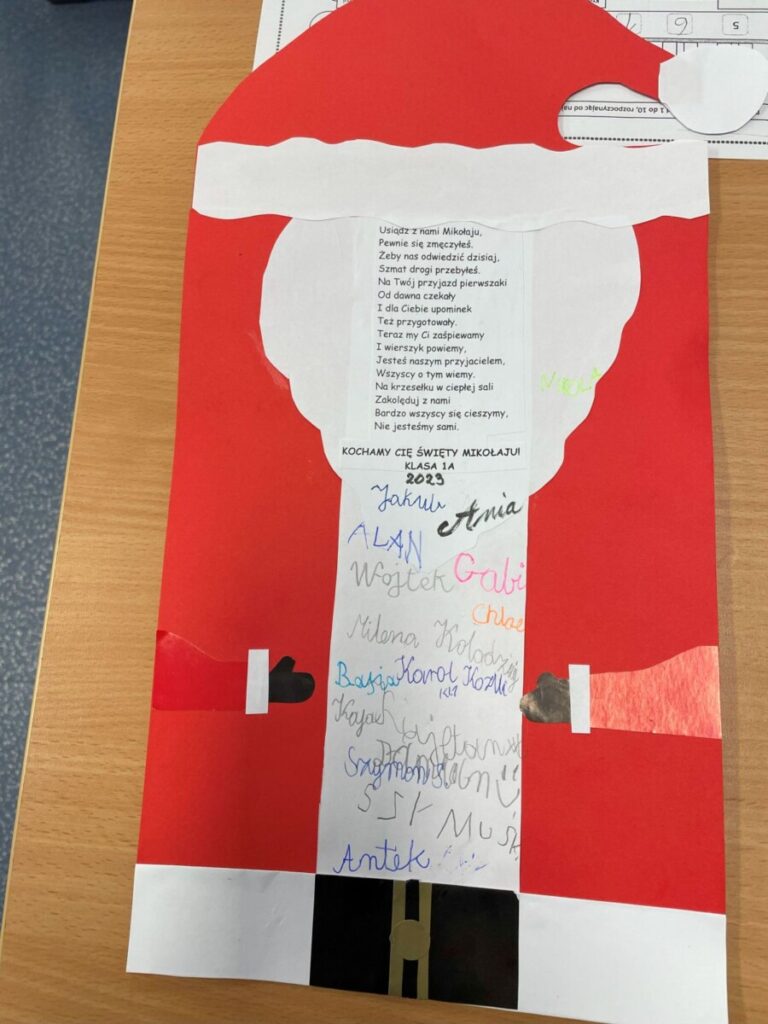 5 6
1 do 10, rozpoczynając od
Usiądz z nami Mikołaju,
Pewnie się zmęczyłeś.
Żeby nas odwiedzić dzisiaj,
Szmat drogi przebyłeś.
Na Twój przyjazd pierwszaki
Od dawna czekały
I dla Ciebie upominek
Też przygotowały.
Teraz my Ci zaśpiewamy
I wierszyk powiemy,
Jesteś naszym przyjacielem,
Wszyscy o tym wiemy.
Na krzesełku w ciepłej sali
Zakolęduj z nami
Bardzo wszyscy się cieszymy,
Nie jesteśmy sami.
KOCHAMY CIĘ ŚWIĘTY MIKOŁAJU!
KLASA 1A
2023
Jakub
Ania
ALAN
Wojtek Gabi
Chloe
Milena
Basia Karol
Kaja
Szymon
Antek